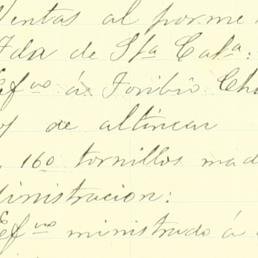 Ventas al por me
Fda de Sta Cata:
Efvos á Toribio Ch
de altincar
160 tornillos mad
ministracion:
Efvos ministrado á